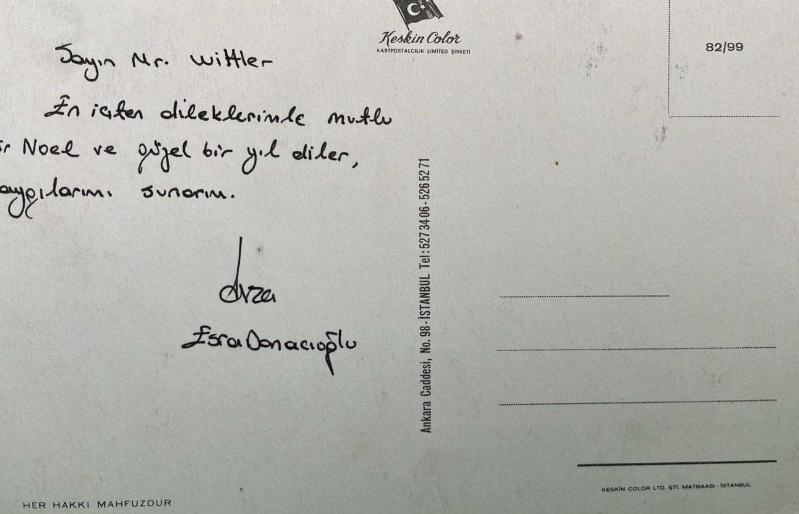 Sayın Mr. Wittler
En içten dileklerimle mutlu
ir Noel ve güzel bir yıl diler,
aygılarımı sunarım.
Esra Danacıoğlu
Keskin Color
KARTPOSTALCILIK LIMITED ŞİRKETİ
82/99
Ankara Caddesi, No. 98-İSTANBUL Tel: 527 34 06 - 526 52 71
HER HAKKI MAHFUZDUR
KESKİN COLOR LTD. ŞTİ. MATBAASI - İSTANBUL